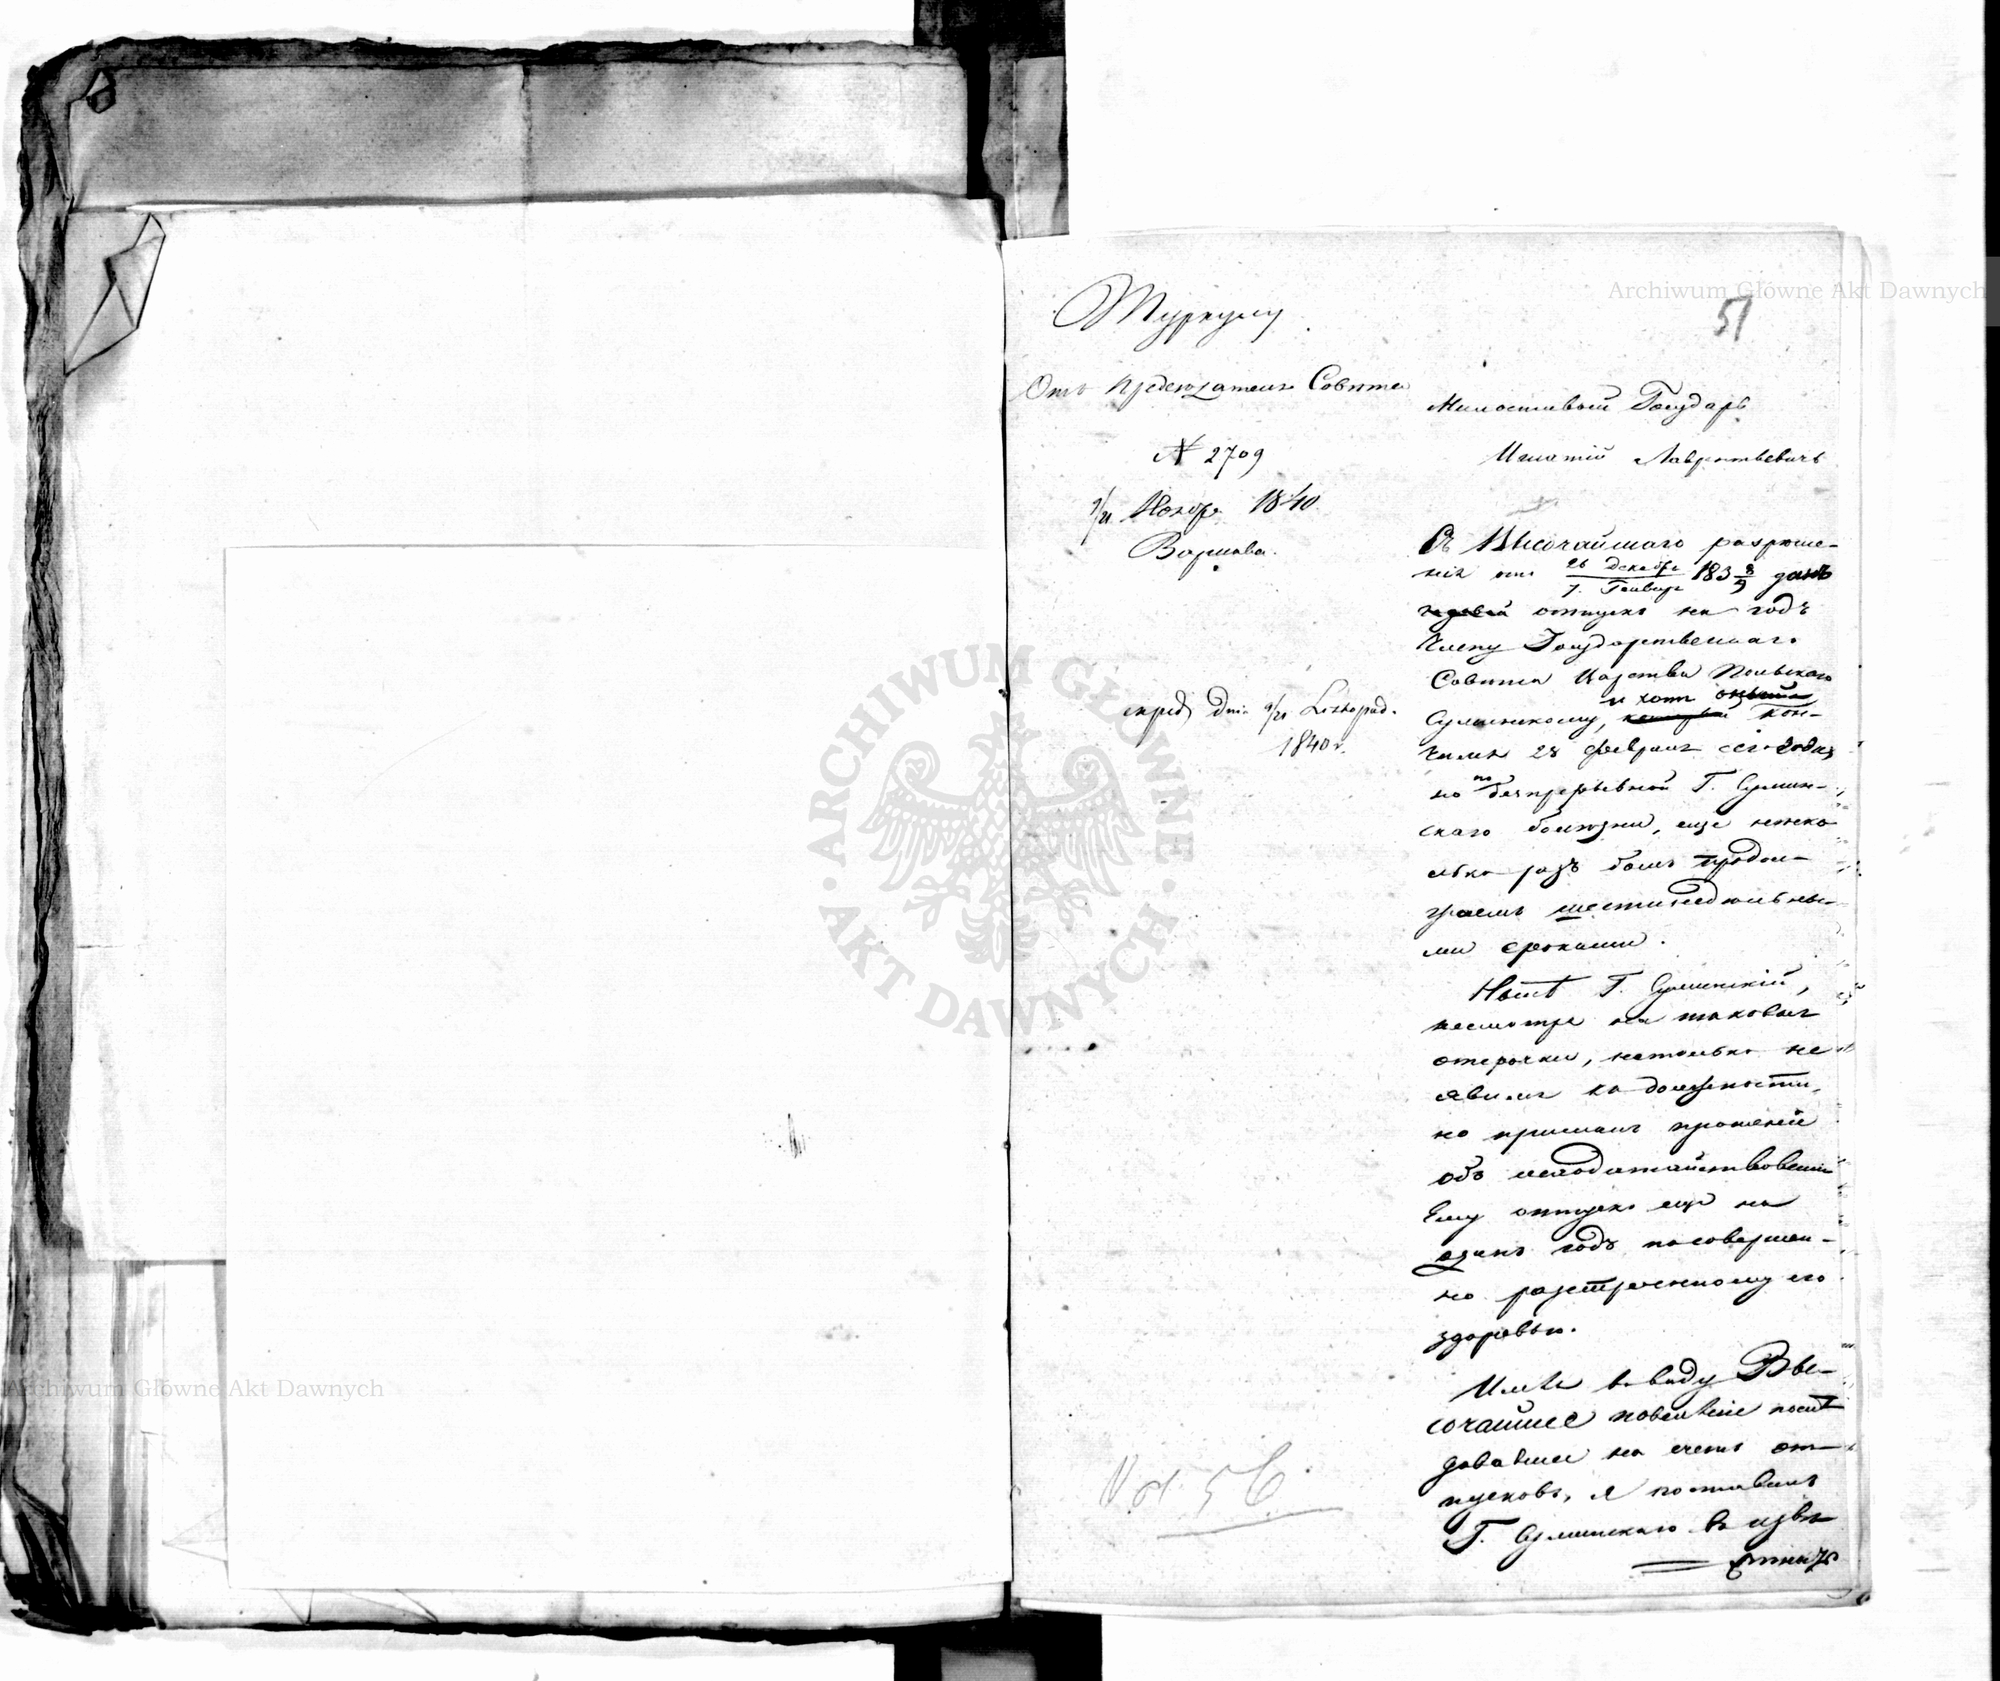 Туркулу
51
Отъ Председателя Совѣта
№ 2709
9/21 Ноябр. 1840.
Варшава.
exped dnia 9/21 Listopad.
1840 r.
Милостивый Государь
Игнатій Лаврентьевичъ
Съ Высочайшаго разрѣше-
нія отъ 26 Декабря / 7. Генваря 183 8/9 данъ
годовой отпускъ на годъ
Члену Государственнаго
Совѣта Царства Польскаго
и хотя
Сулинскому, который кон-
чился 28 февраля сего года,
но по безпрерывной Г. Сумин-
скаго болѣзни, еще нѣско
лько разъ былъ продол-
жаемъ шестинедѣльны-
ми сроками.
Нынѣ Г. Суминскій,
несмотря на таковыя
отсрочки, нетолько не
явился къ должности,
но прислалъ прошеніе
объ исходатайствованіи
Ему отпуска еще на
одинъ годъ по совершен-
но разстроенному его
здоровью.
Имѣя въ виду Вы-
сочайшее повелѣніе послѣ
довавшее на счетъ от-
пусковъ, я поставилъ
Г. Суминскаго въ извѣ
стность
Vol 56.
Archiwum Główne Akt Dawnych
Archiwum Główne Akt Dawnych
ARCHIWUM GŁÓWNE
AKT DAWNYCH